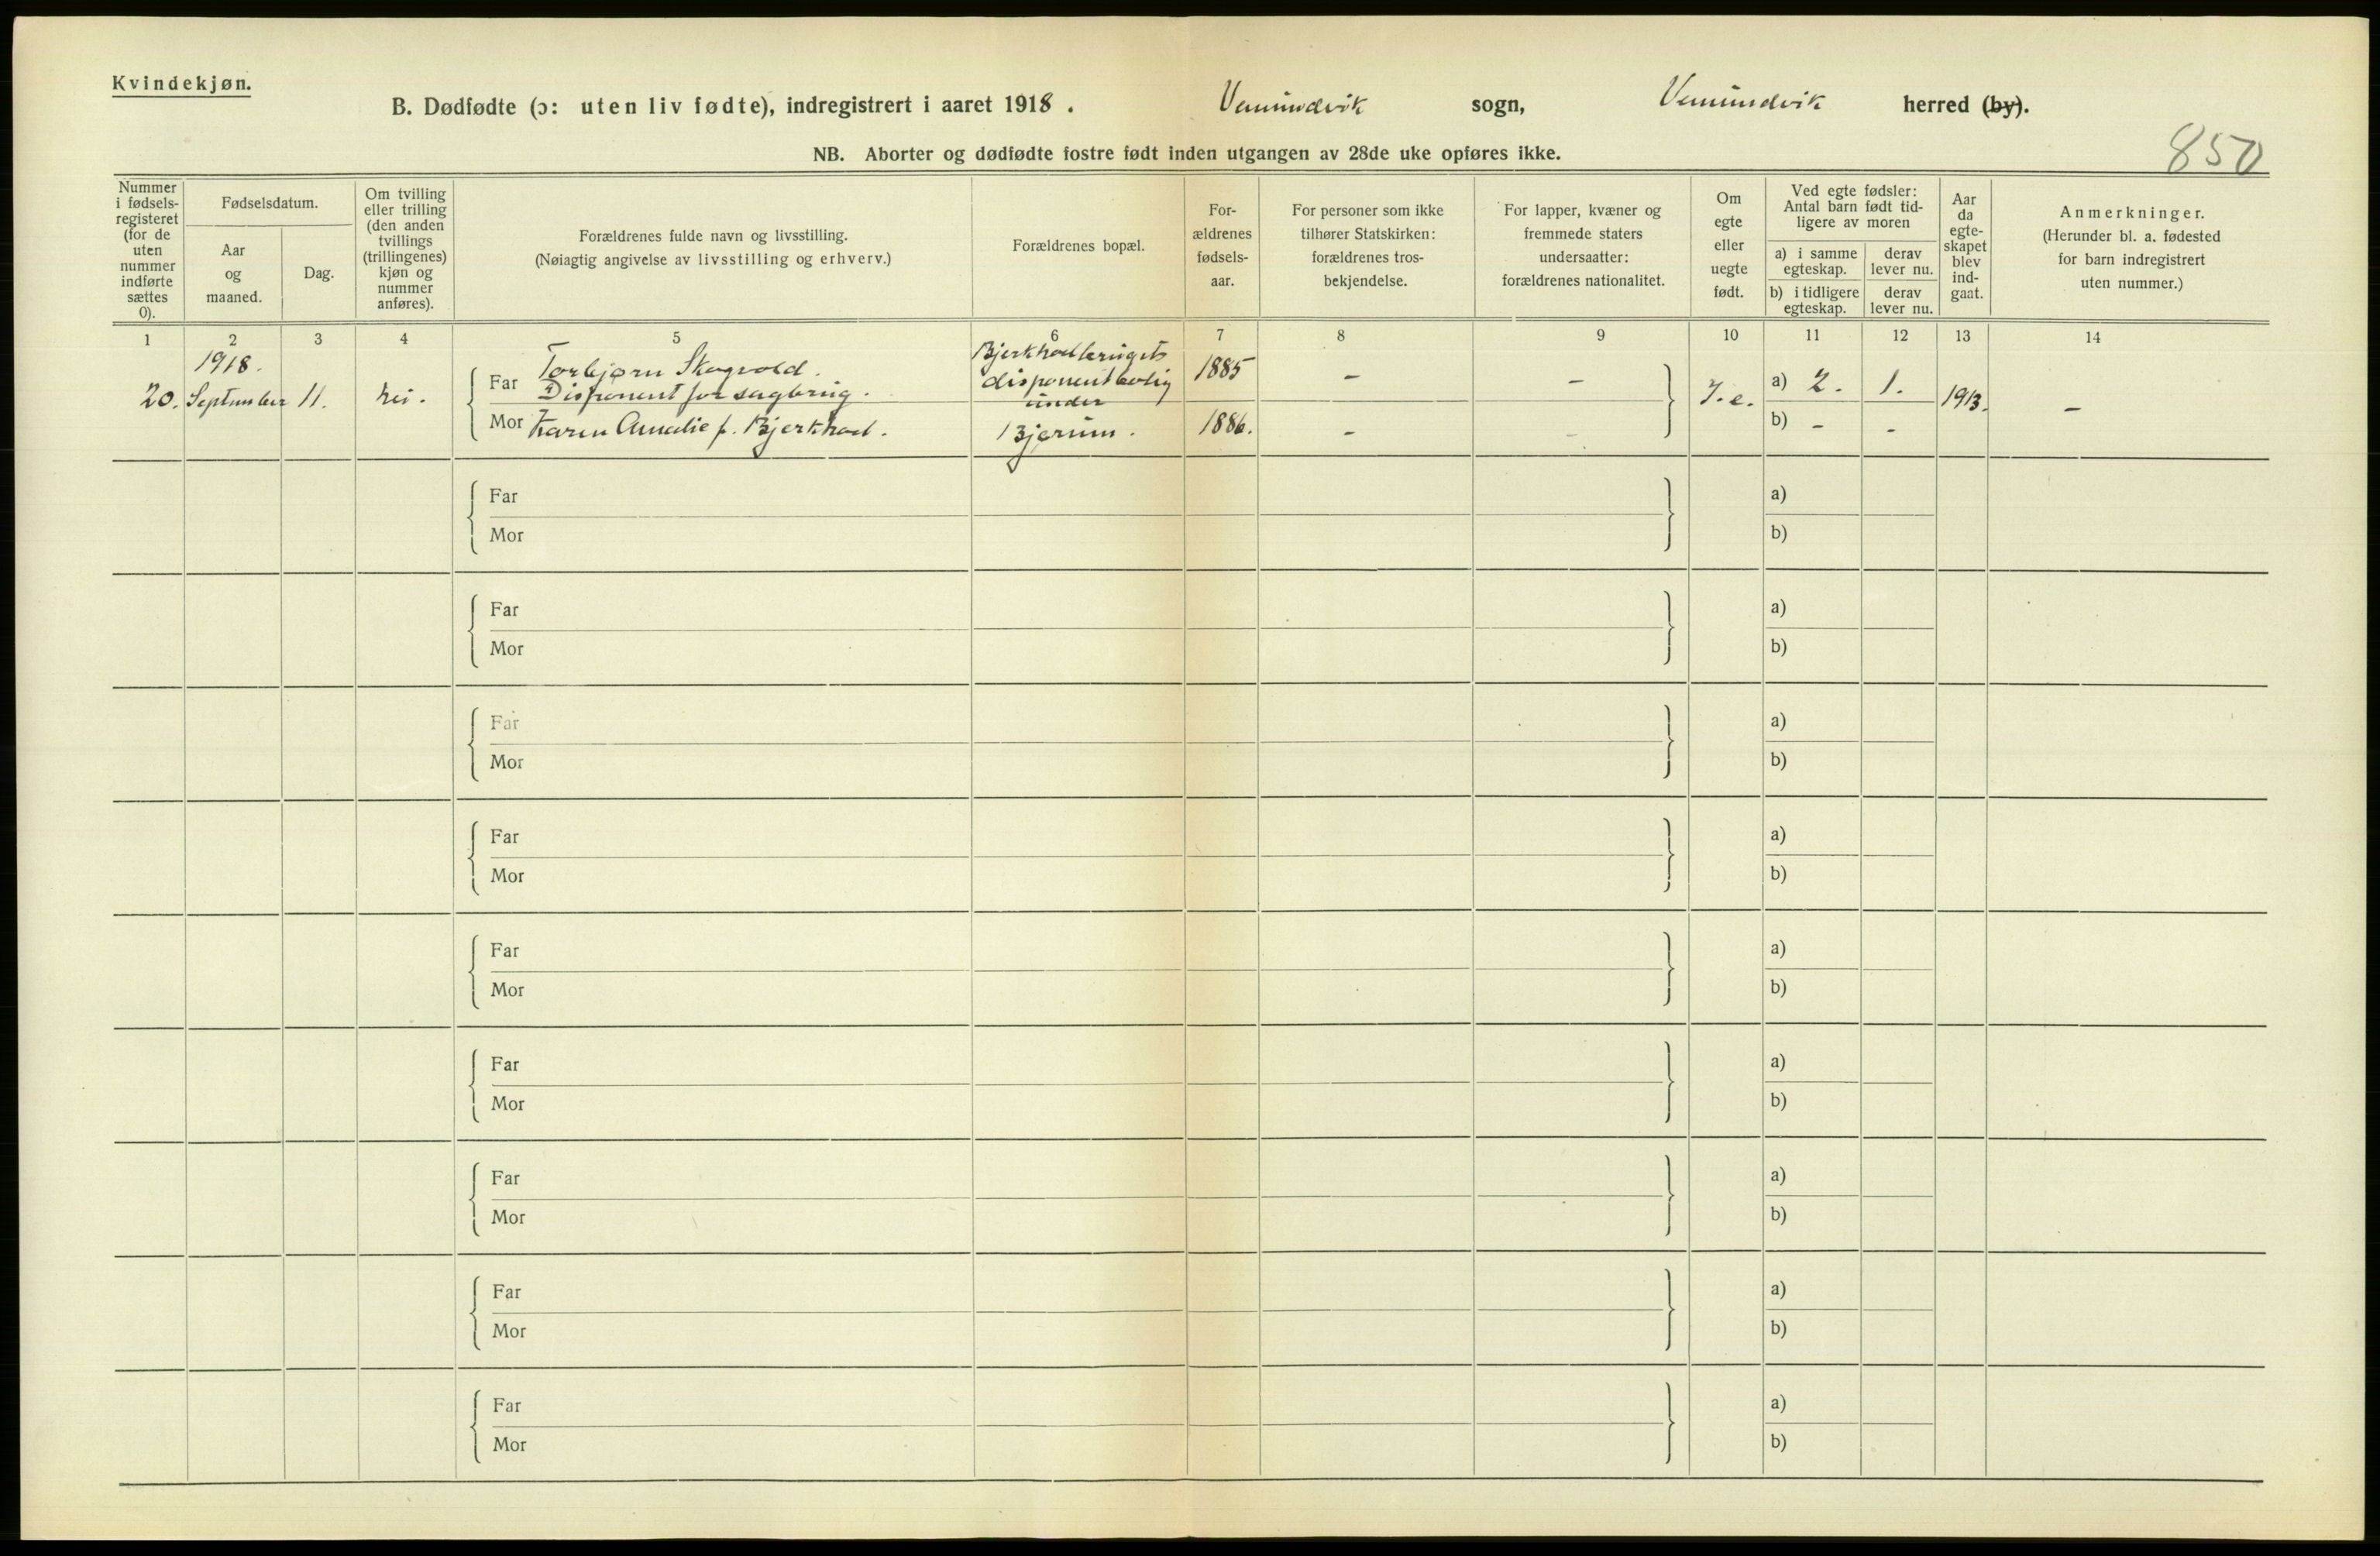 Kvindekjøn.
B. Dødfødte (ɔ: uten liv fødte), indregistrert i aaret 1918. Vemundvik sogn, Vemundvik herred (by).
NB. Aborter og dødfødte fostre født inden utgangen av 28de uke opføres ikke.
850
Nummer i fødsels-registeret (for de uten nummer indførte sættes 0).
Fødselsdatum.
Aar og maaned.
Dag.
Om tvilling eller trilling (den anden tvillings (trillingenes) kjøn og nummer anføres).
Forældrenes fulde navn og livsstilling.
(Nøiagtig angivelse av livsstilling og erhverv.)
Forældrenes bopæl.
For-ældrenes fødsels-aar.
For personer som ikke tilhører Statskirken: forældrenes tros-bekjendelse.
For lapper, kvæner og fremmede staters undersaatter: forældrenes nationalitet.
Om egte eller uegte født.
Ved egte fødsler: Antal barn født tid-ligere av moren
a) i samme egteskap.
derav lever nu.
b) i tidligere egteskap.
derav lever nu.
Aar da egte-skapet blev ind-gaat.
Anmerkninger.
(Herunder bl. a. fødested for barn indregistrert uten nummer.)
1 2 3 4 5 6 7 8 9 10 11 12 13 14
1918.
20. September 11. nei.
Far Torbjørn Skogvold.
Disponent for sagbrug.
disponentbolig
under
1885 - -
Mor Karen Amalie f. Bjerkhoel.
Bjørum.
1886. - -
a) 2. 1. 1913. -
b) - -
Far a)
Mor b)
Far a)
Mor b)
Far a)
Mor b)
Far a)
Mor b)
Far a)
Mor b)
Far a)
Mor b)
Far a)
Mor b)
Far a)
Mor b)
Far a)
Mor b)